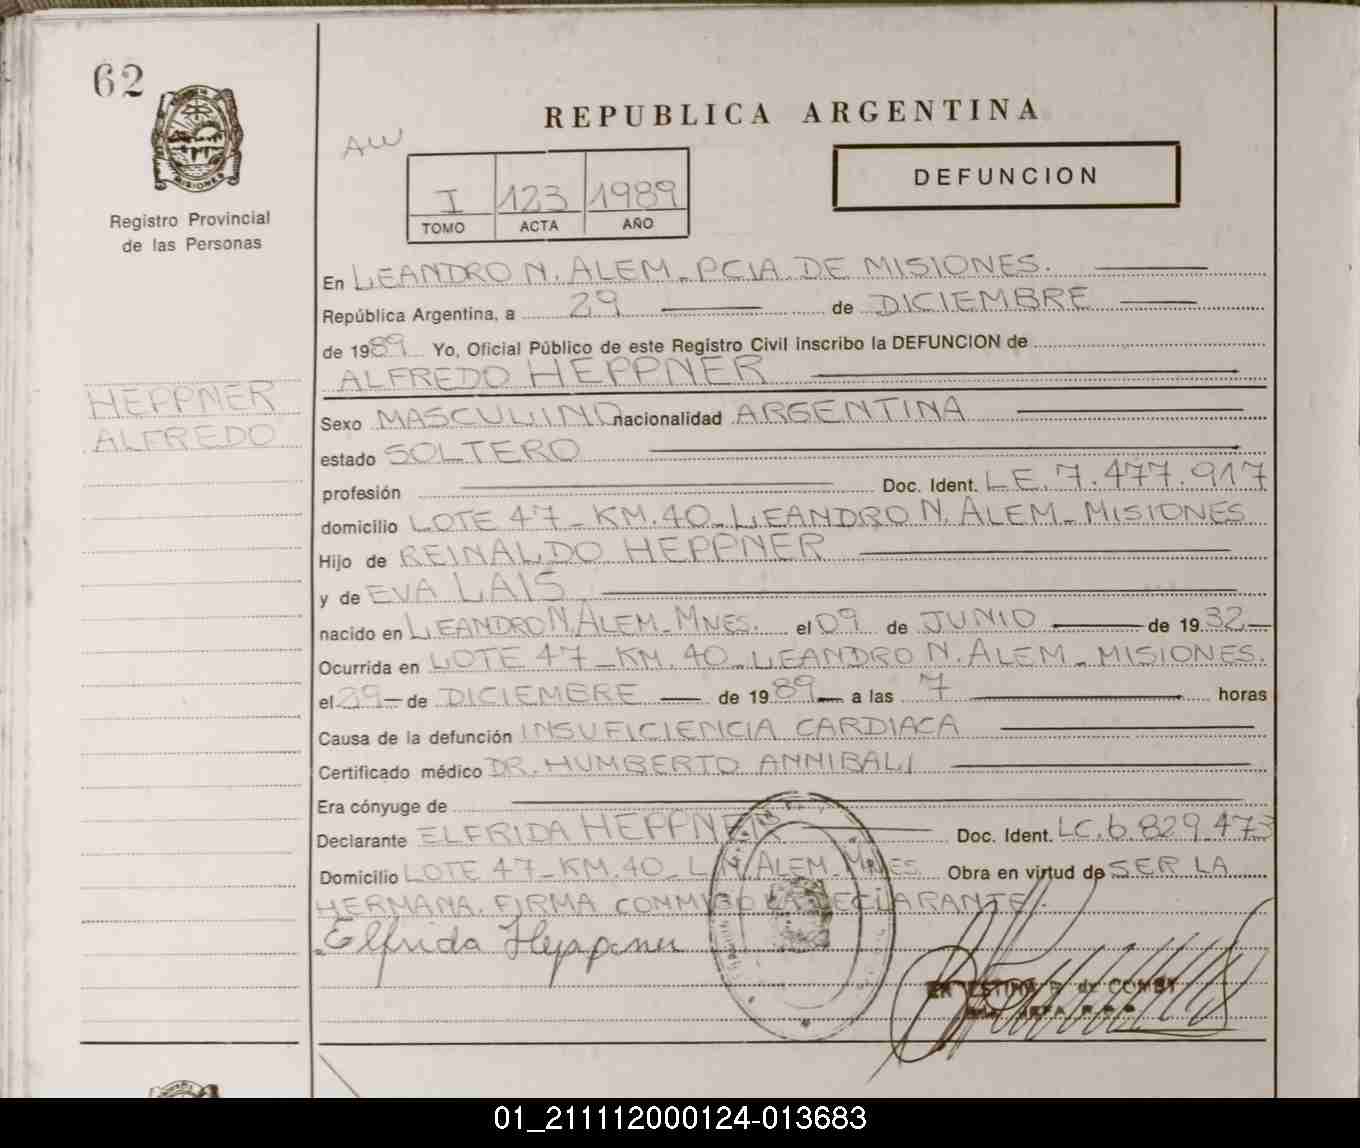 62
MISIONES
Registro Provincial
de las Personas
HEPPNER
ALFREDO
REPUBLICA ARGENTINA
AW
I 123 1989
TOMO ACTA AÑO
DEFUNCION
En LEANDRO N. ALEM - PCIA DE MISIONES.
República Argentina, a 29 de DICIEMBRE
de 1989 Yo, Oficial Público de este Registro Civil inscribo la DEFUNCION de
ALFREDO HEPPNER
Sexo MASCULINO nacionalidad ARGENTINA
estado SOLTERO
profesión Doc. Ident. L.E. 7.477.917
domicilio LOTE 47 - KM. 40 - LEANDRO N. ALEM - MISIONES
Hijo de REINALDO HEPPNER
y de EVA LAIS
nacido en LEANDRO N. ALEM - MNES. el 09 de JUNIO de 1932
Ocurrida en LOTE 47 - KM. 40 - LEANDRO N. ALEM - MISIONES.
el 29 de DICIEMBRE de 1989 a las 7 horas
Causa de la defunción INSUFICIENCIA CARDIACA
Certificado médico DR. HUMBERTO ANNIBALI
Era cónyuge de
Declarante ELFRIDA HEPPNER Doc. Ident. LC. 6.829.473
Domicilio LOTE 47 - KM. 40 - L.N. ALEM - MNES. Obra en virtud de SER LA
HERMANA. FIRMA CONMIGO LA DECLARANTE.
Elfrida Heppner
01_211112000124-013683